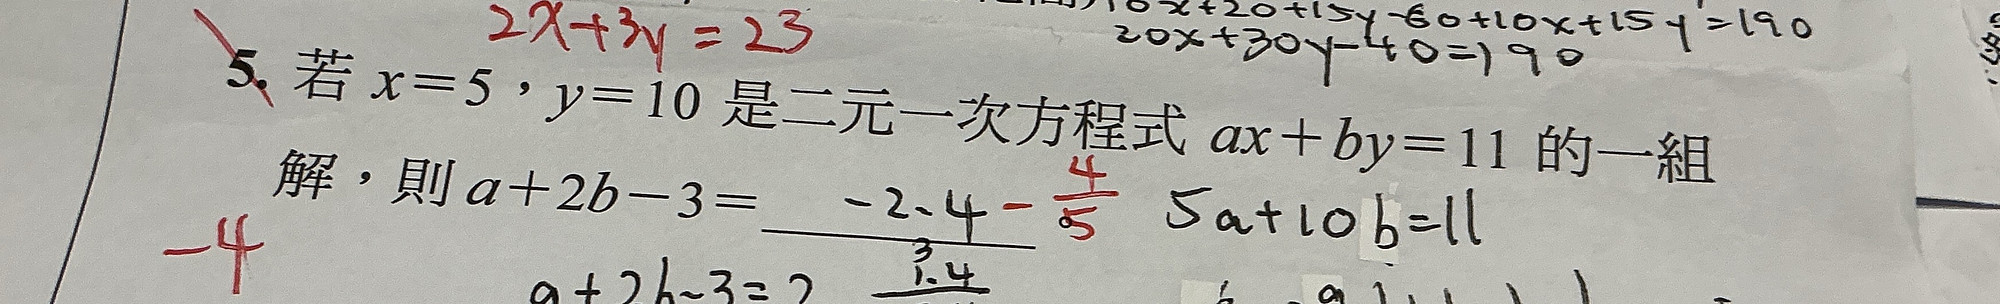 2x+3y=23
10x+20+15y-60+10x+15y=190
20x+30y-40=190
5. 若 x=5，y=10 是二元一次方程式 ax+by=11 的一組
解，則 a+2b-3= -2.4 -4/5 5a+10b=11
-4
a+2b-3=?